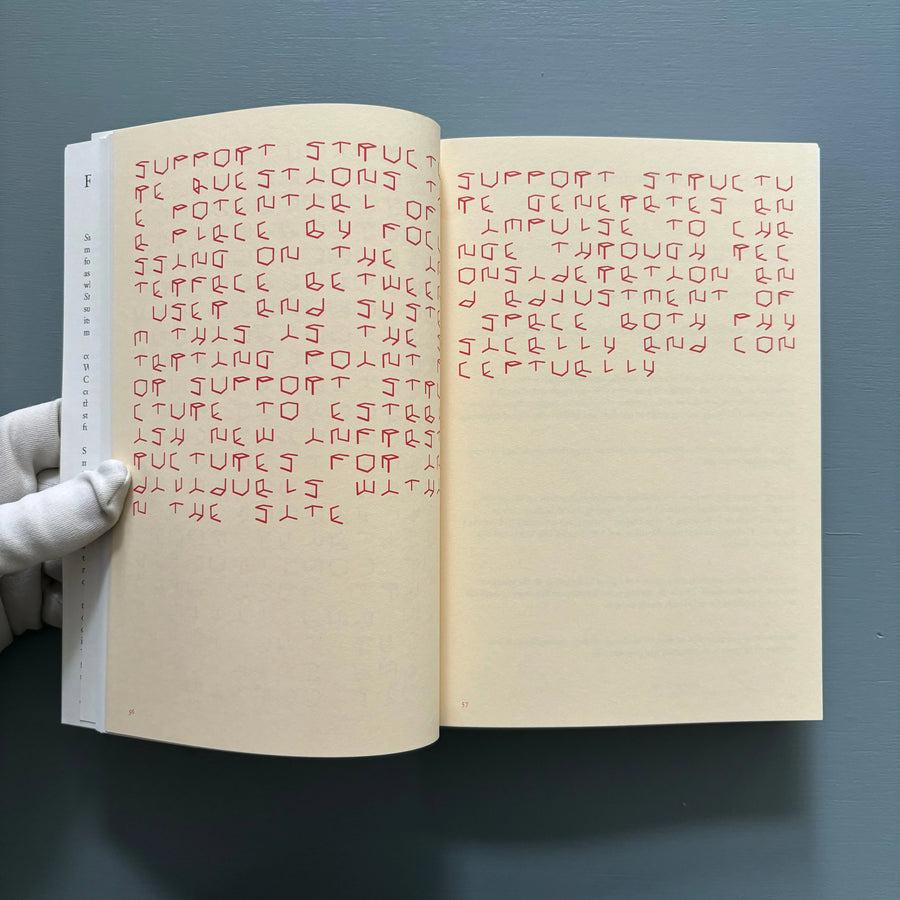 SUPPORT STRUCT
RE QUESTIONS T
E POTENTIAL OF
A PLACE BY FOC
SSING ON THE I
TERFACE BETWEE
USER AND SYST
M THIS IS THE
TARTING POINT
OR SUPPORT STR
CTURE TO ESTAB
ISH NEW INFRAS
RUCTURES FOR I
dIVIdUALS WITH
N THE SITE
56
SUPPORT STRUCTU
RE GENERATES AN
IMPULSE TO CHA
NGE THROUGH REC
ONSIdERATION AN
d AdJUSTMENT OF
SPACE BOTH PHY
SICALLY ANd CON
CEPTUALLY
57